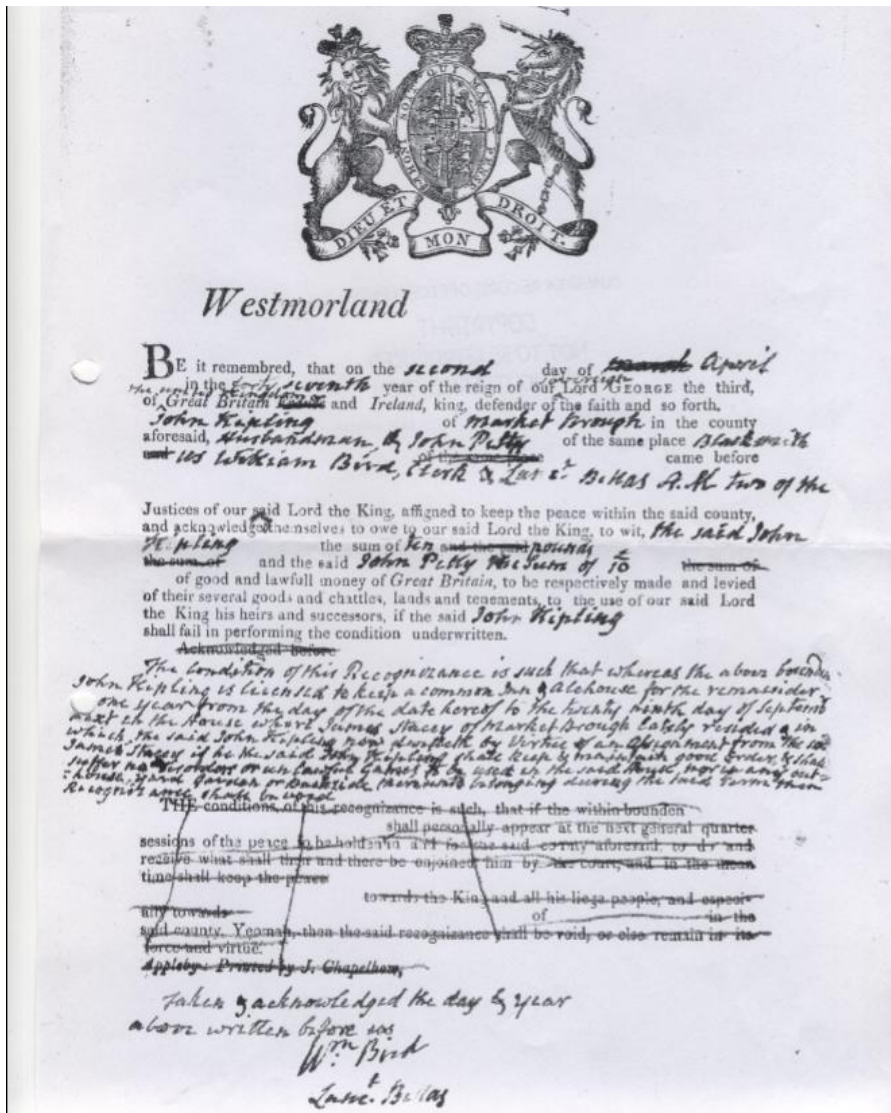 HONI SOIT QUI MAL Y PENSE
DIEU ET MON DROIT.
Westmorland
BE it remembered, that on the second day of march April
in the forty seventh year of the reign of our sovereign Lord GEORGE the third,
the united Kingdom
of Great Britain and Ireland, king, defender of the faith and so forth,
John Kipling of Market Brough in the county
aforesaid, Husbandman, & John Petty of the same place Blacksmith
and of the same place came before
us William Bird, Clerk & Lanct. Bellas A.M two of the
Justices of our said Lord the King, assigned to keep the peace within the said county,
and acknowledged themselves to owe to our said Lord the King, to wit, the said John
Kipling the sum of ten and the said pounds
the sum of and the said John Petty the Sum of £10 the sum of
of good and lawfull money of Great Britain, to be respectively made and levied
of their several goods and chattles, lands and tenements, to the use of our said Lord
the King his heirs and successors, if the said John Kipling
shall fail in performing the condition underwritten.
Acknowledged before
The Condition of this Recognizance is such that whereas the above bounden
John Kipling is licensed to keep a common Inn & Alehouse for the remainder of
one year from the day of the date hereof to the twenty ninth day of Septemr
next in the House where James Stacey of Market Brough lately resided & in
which the said John Kipling now dwelleth by Virtue of an Assignment from the sd
James Stacey if he the said John Kipling shall keep & maintain good Order, & shall
suffer no disorders or unlawful Games to be used in the said house, nor in any out-
house, yard Garden or Backside thereunto belonging during the said Term then
Recognizance shall be void
THE conditions of this recognizance is such, that if the within bounden
shall personally appear at the next general quarter
sessions of the peace to be holden in and for the said county aforesaid, to do and
receive what shall then and there be enjoined him by the court, and in the mean
time shall keep the peace
towards the King and all his liege people, and especi-
ally towards of in the
said county, Yeoman, then the said recognizance shall be void, or else remain in its
force and virtue.
Appleby: Printed by J. Chapelhow,
Taken & acknowledged the day & year
above written before us
Wm. Bird
Lanct. Bellas